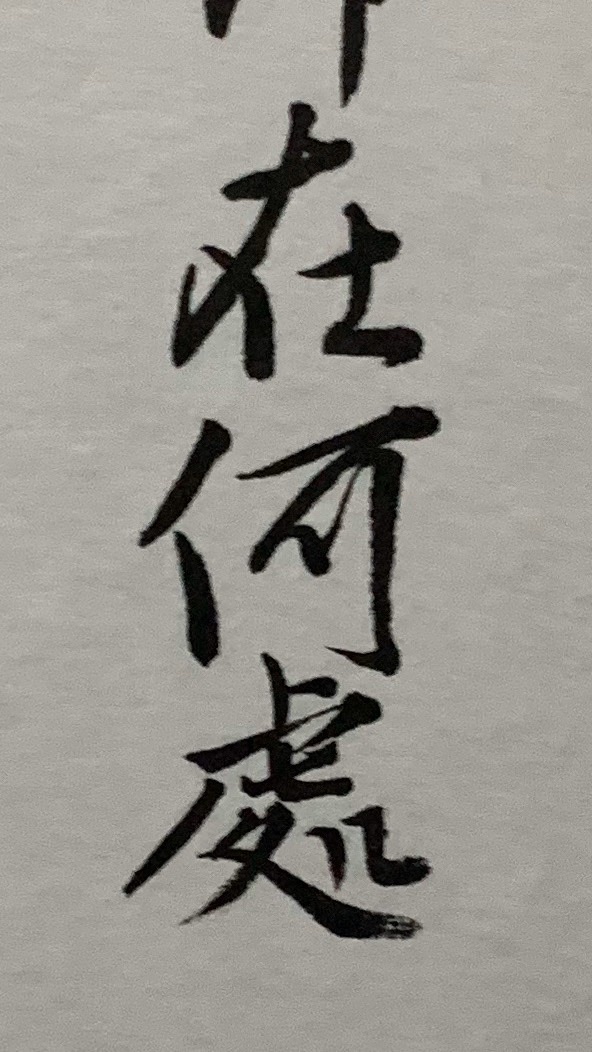 在何處